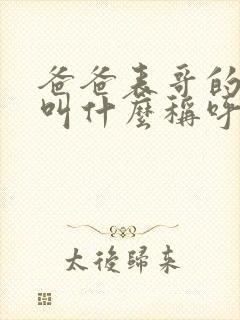 爸爸表哥的
叫什麼稱呼
太後歸來